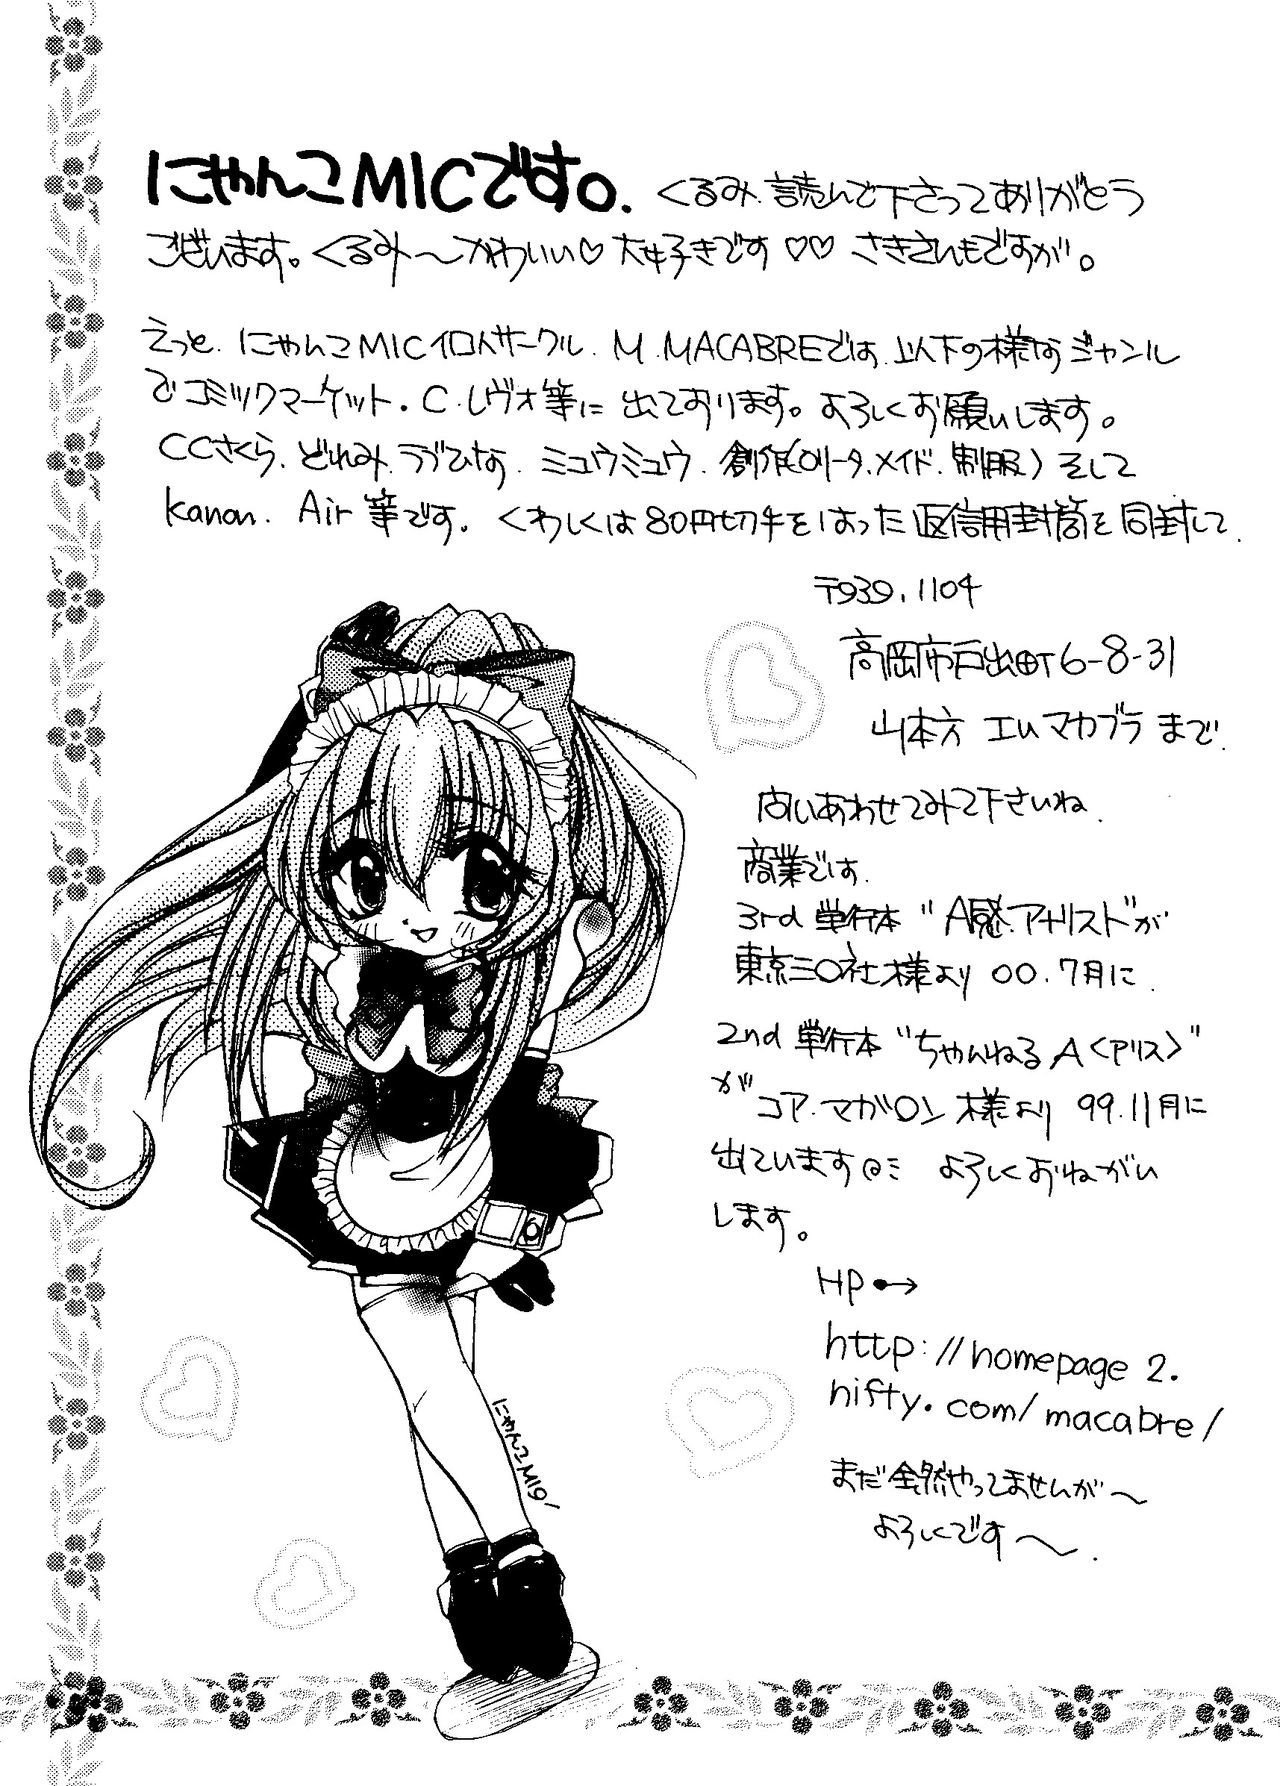 にゃんこMICです。くるみ、読んで下さってありがとう
ございます。くるみ〜かわいい♡大好きです♡♡さきさんもですが。
えっと、にゃんこMIC個人サークル、M.MACABREでは、以下の様なジャンル
でコミックマーケット・C.レヴォ等に出ております。よろしくお願いします。
CCさくら、どれみ、ラブひな、ミュウミュウ、創作(ロリータ、メイド、制服)そして
kanon、Air等です。くわしくは80円切手をはった返信用封筒を同封して、
〒939.1104
高岡市戸出町6-8-31
山本方 エムマカブラまで、
問いあわせてみて下さいね。
商業では、
3rd 単行本 "A感.アナリスト"が
東京三〇社様より 00.7月に、
2nd 単行本 "ちゃんねるA<アリス>"
が コア.マガ〇ン様より 99.11月に
出ています よろしくおねがい
します。
HP●→
http://homepage2.
nifty.com/macabre/
まだ全然やってませんが〜
よろしくです〜。
にゃんこMIC/